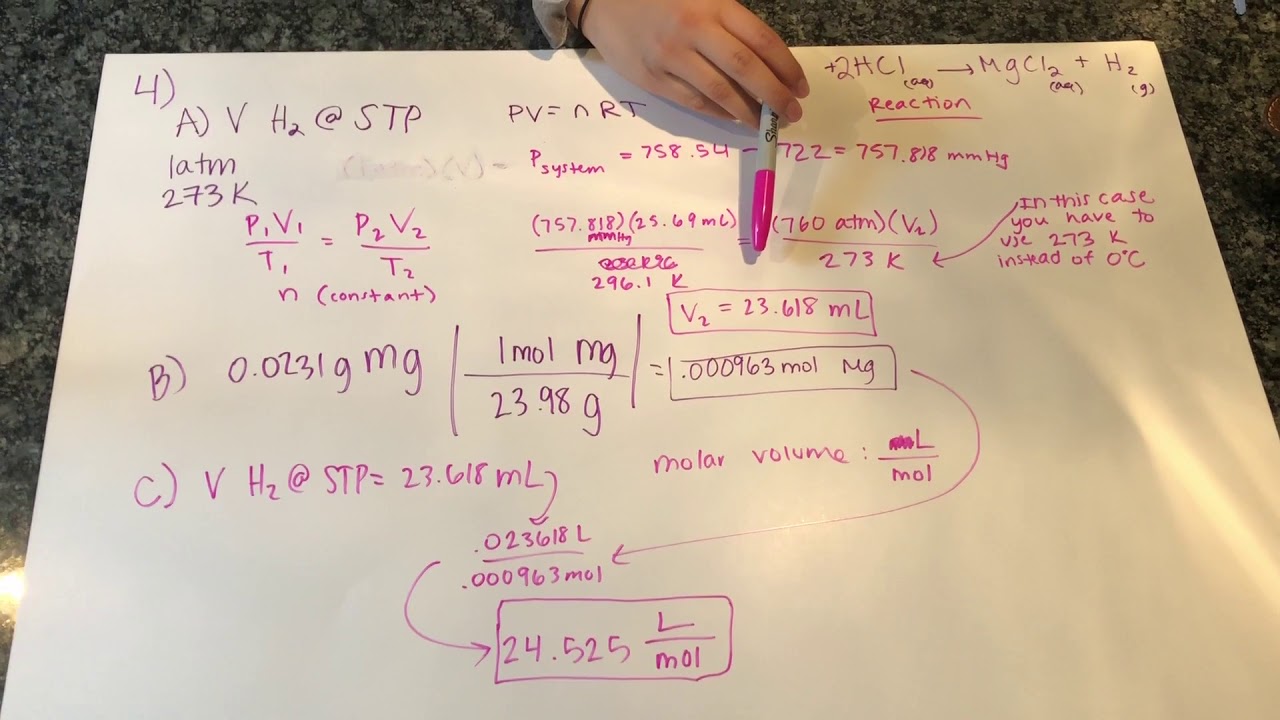 4)
A) V H₂ @ STP
PV = nRT
+2HCl (aq) → MgCl₂ (aq) + H₂ (g)
Reaction
1atm
273 K
(V) =
P system = 758.54 - .722 = 757.818 mmHg
P₁V₁ / T₁ = P₂V₂ / T₂
n (constant)
(757.818)(25.69 mL) = (760 atm)(V₂)
mmHg
296.1 K
273 K
In this case
you have to
use 273 K
instead of 0°C
V₂ = 23.618 mL
B) 0.0231g mg | 1mol mg / 23.98 g | = .000963 mol Mg
C) V H₂ @ STP = 23.618 mL
molar volume : L / mol
.023618 L
.000963 mol
24.525 L / mol